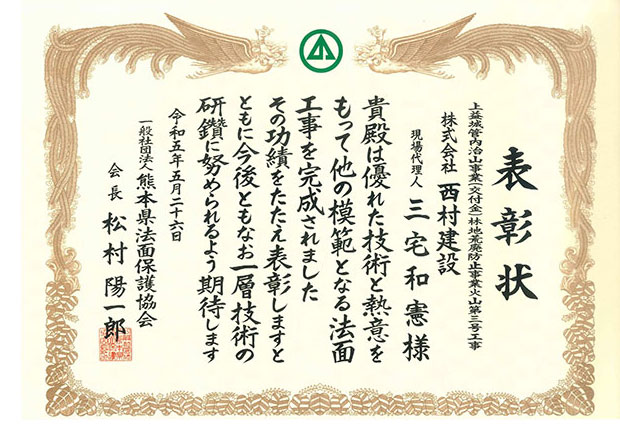 表彰状
上益城管内治山事業(交付金)林地荒廃防止事業火山第三号工事
株式会社 西村建設
現場代理人 三宅和憲様
貴殿は優れた技術と熱意を
もって他の模範となる法面
工事を完成されました
その功績をたたえ表彰しますと
ともに今後ともなお一層技術の
研鑽に努められるよう期待します
令和五年五月二十六日
一般社団法人 熊本県法面保護協会
会長 松村陽一郎